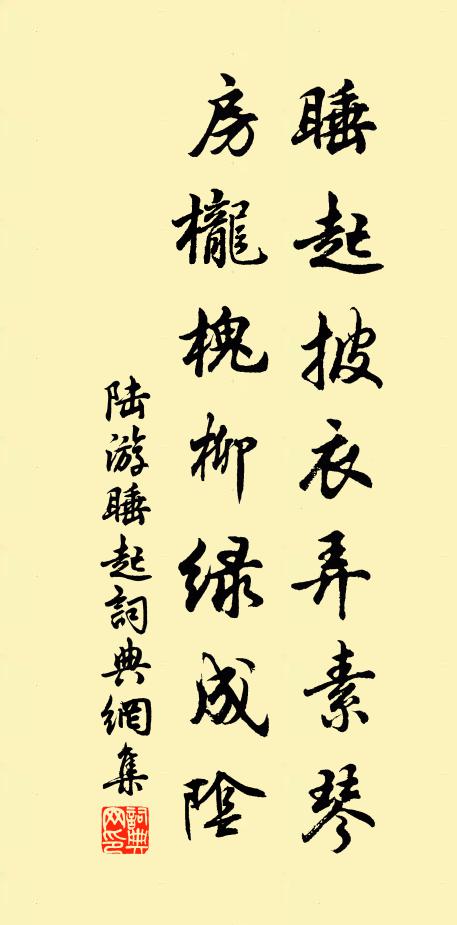 睡起披衣弄素琴
房櫳槐柳緑成陰
陸游睡起詞典網集
詞典網印